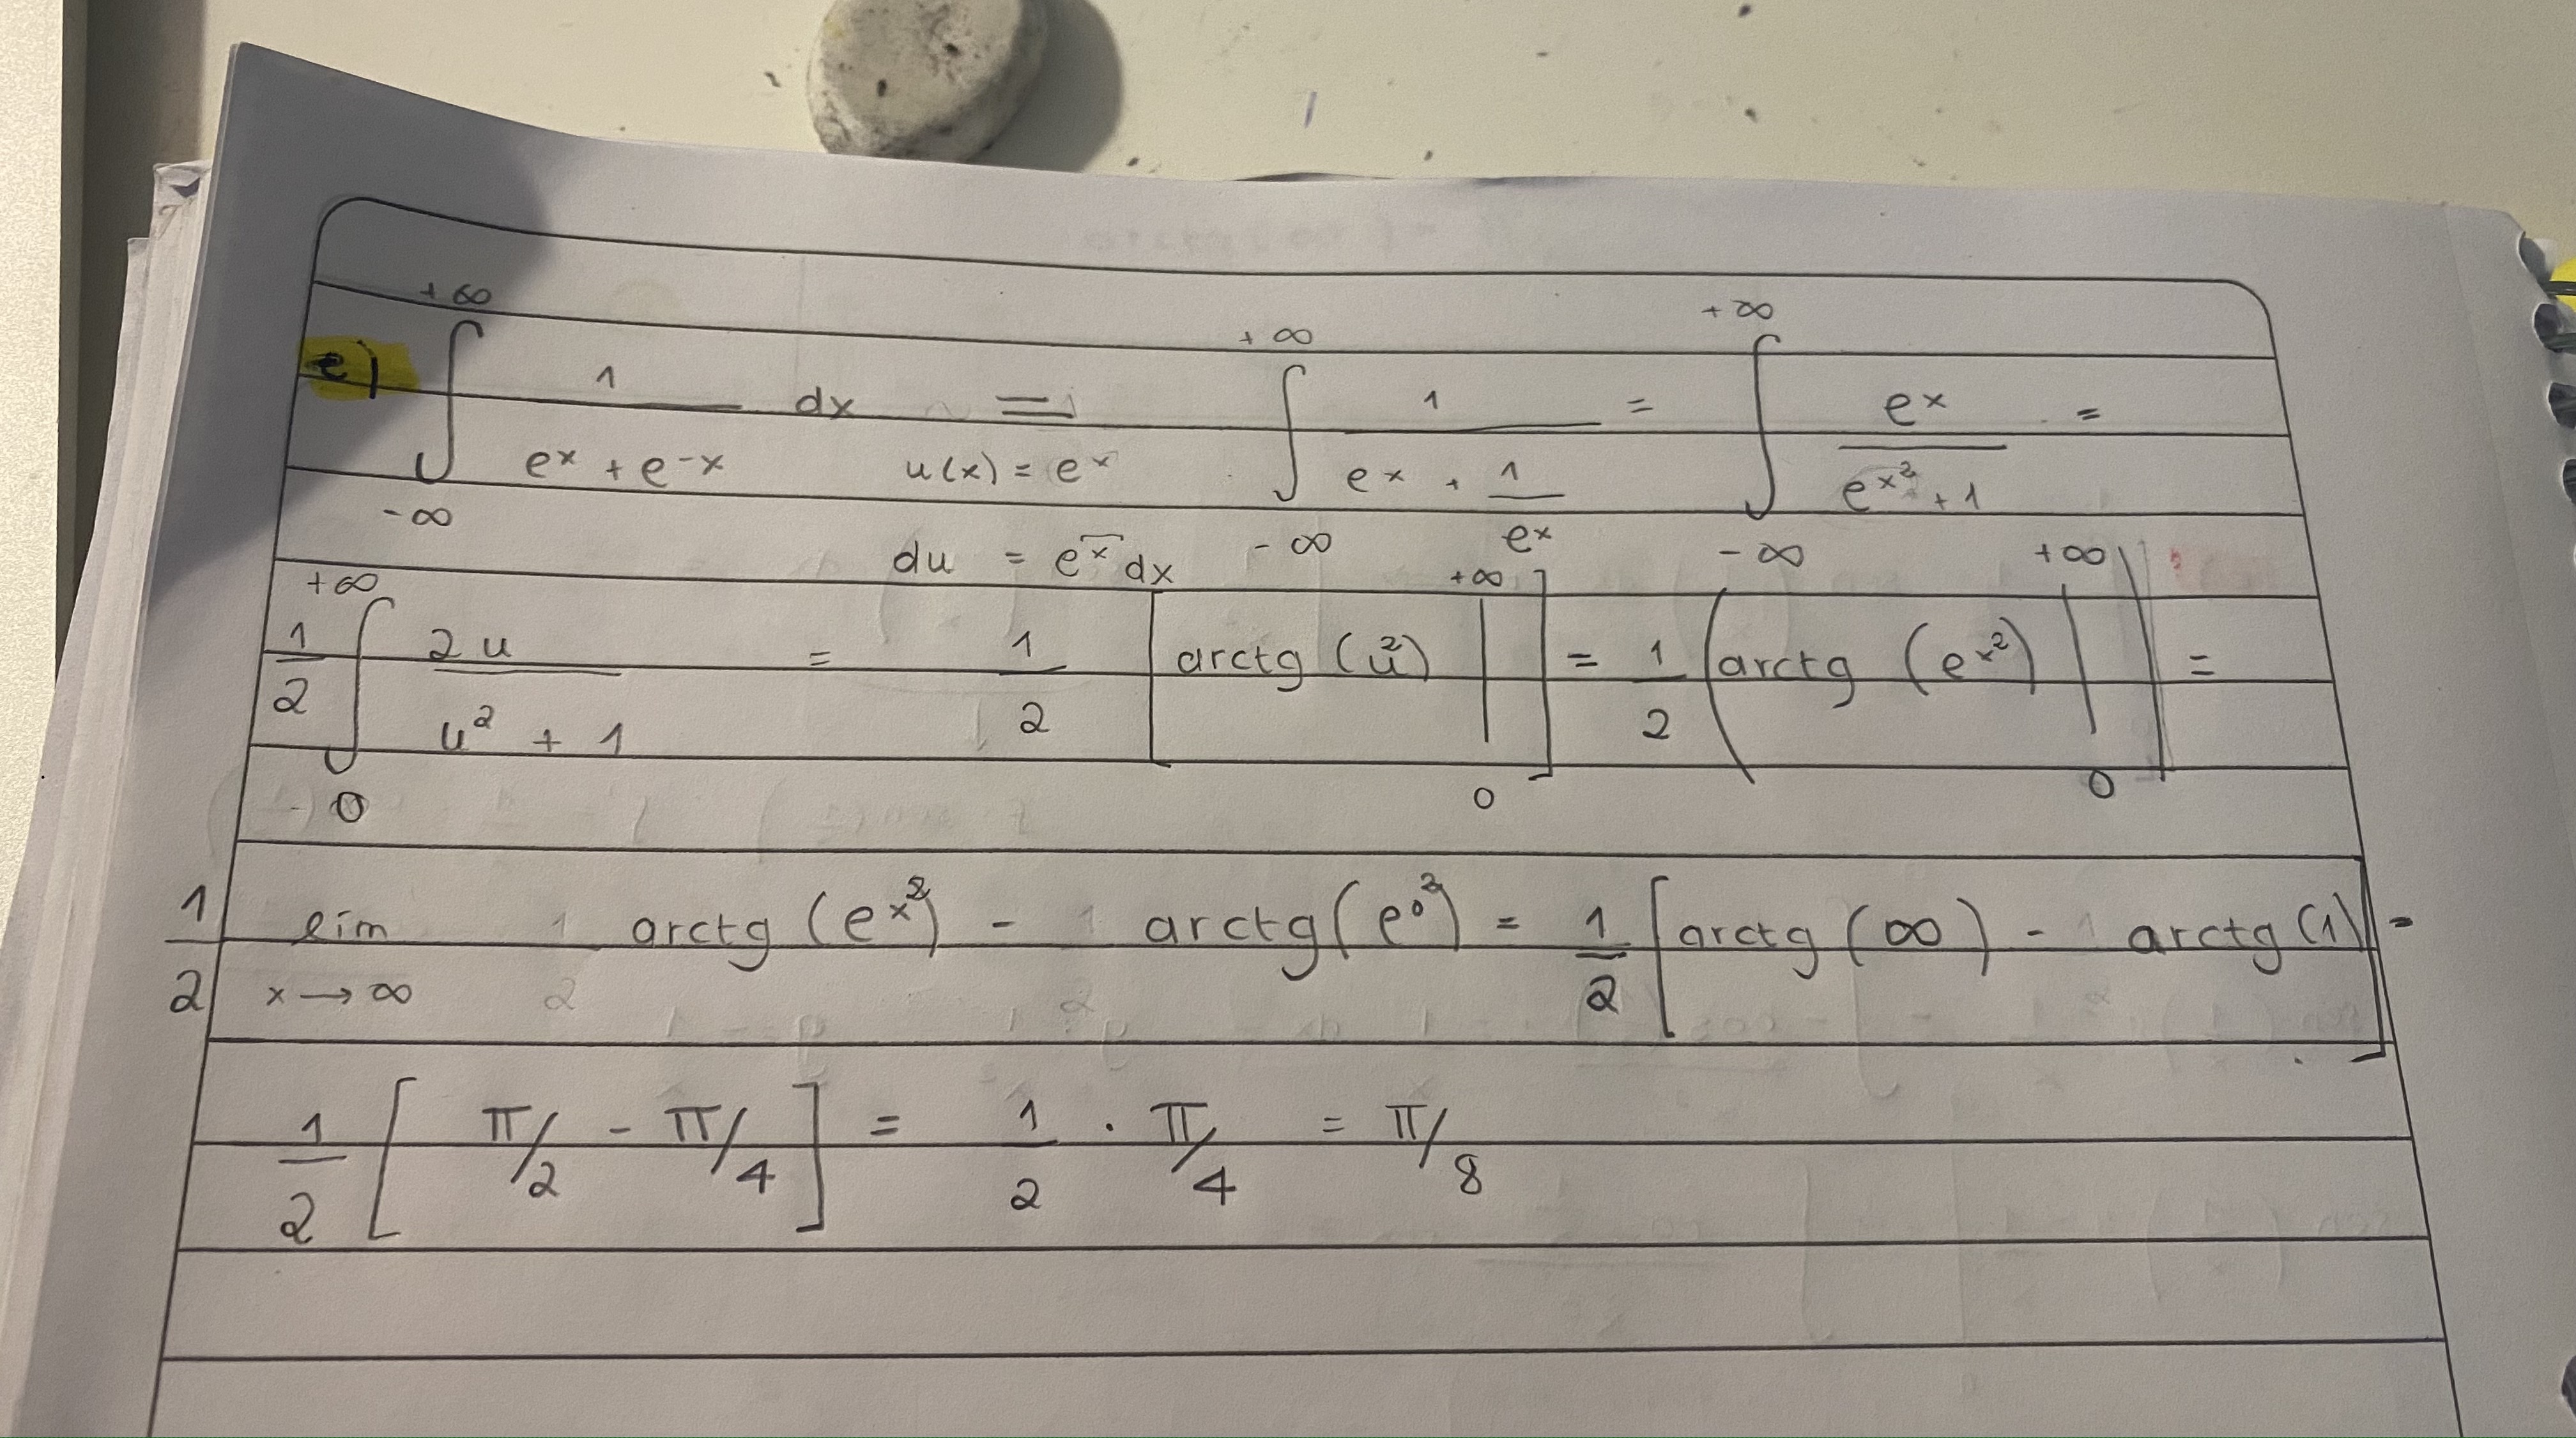 e) ∫_{-∞}^{+∞} 1/(e^x + e^{-x}) dx = ∫_{-∞}^{+∞} 1/(e^x + 1/e^x) = ∫_{-∞}^{+∞} e^x/(e^{x^2} + 1) =
u(x) = e^x
du = e^x dx
1/2 ∫_0^{+∞} 2u/(u^2 + 1) = 1/2 [arctg(u^2) |_0^{+∞}] = 1/2 (arctg(e^{x^2}) |_0^{+∞}) =
1/2 lim_{x→∞} arctg(e^{x^2}) - arctg(e^{0^2}) = 1/2 [arctg(∞) - arctg(1)] =
1/2 [π/2 - π/4] = 1/2 · π/4 = π/8